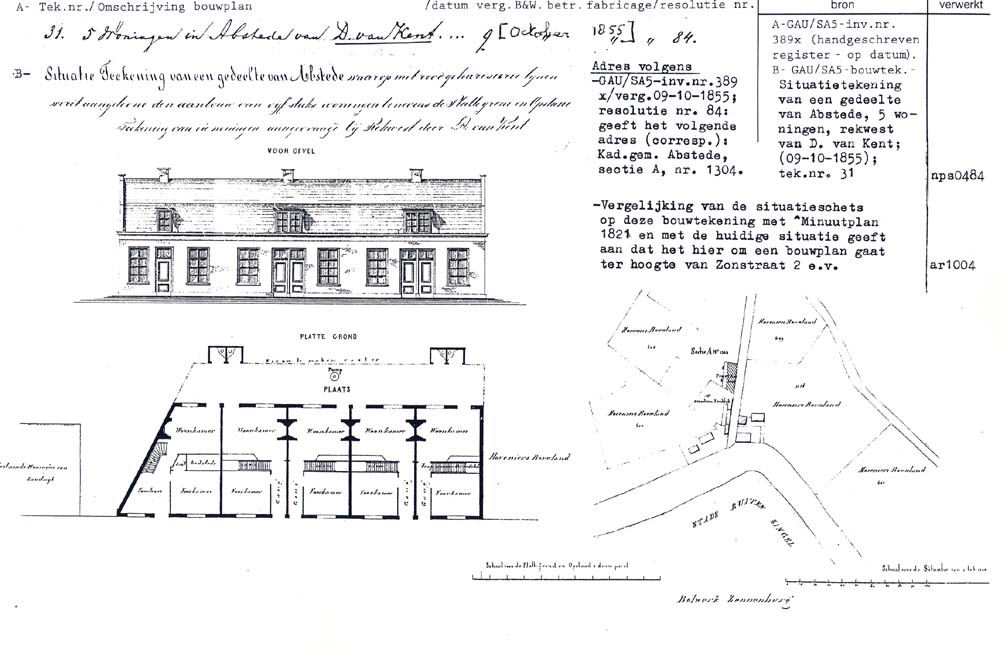 A- Tek.nr./Omschrijving bouwplan
/datum verg.B&W.betr.fabricage/resolutie nr.
bron
verwerkt
31. 5 Woningen in Abstede van D. van Kent.... 9 [October 1855] " 84.
A-GAU/SA5-inv.nr.
389x (handgeschreven
register - op datum).
B- GAU/SA5-bouwtek.-
Situatietekening
van een gedeelte
van Abstede, 5 wo-
ningen, rekwest
van D. van Kent;
(09-10-1855);
tek.nr. 31
nps0484
B- Situatie Teekening van een gedeelte van Abstede waarop met roodgekarseerde lijnen
wordt aangetoond den aanbouw van vyf stuks woningen benevens de Platte grond en Opstand
Teekening van die woningen aangevraagd bij Rekwest door D. van Kent
Adres volgens
-GAU/SA5-inv.nr.389
x/verg.09-10-1855;
resolutie nr. 84:
geeft het volgende
adres (corresp.):
Kad.gem. Abstede,
sectie A, nr. 1304.
-Vergelijking van de situatieschets
op deze bouwtekening met "Minuutplan
1821 en met de huidige situatie geeft
aan dat het hier om een bouwplan gaat
ter hoogte van Zonstraat 2 e.v.
ar1004
VOOR GEVEL
PLATTE GROND
Pomp
PLAATS
Woonkamer Woonkamer Woonkamer Woonkamer Woonkamer
Bedstede
Voorkamer Voorkamer Voorkamer Voorkamer
Gang Gang Gang Gang
Hoveniers Bouwland
Hoveniers Bouwland
Hoveniers Bouwland
Sectie A No 1304
Hoveniers Bouwland
Hoveniers Bouwland
Hoveniers Bouwland
STADS BUITEN SINGEL
Schaal voor de Platte grond en Opstand
Schaal voor de Situatie
Bolwerk Zonnenburg